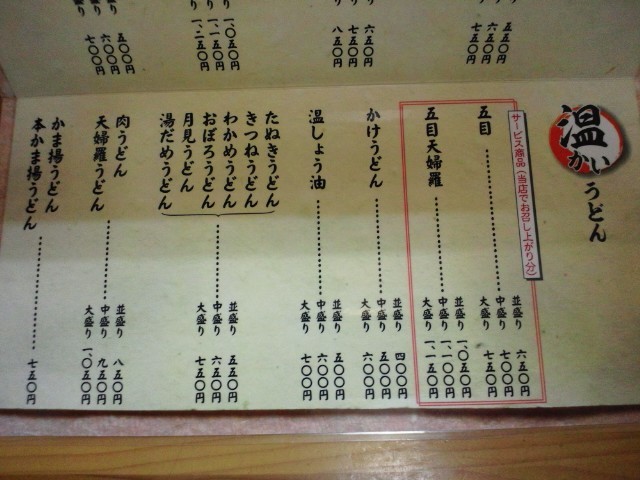 温かいうどん
サービス商品(当店でお召し上がり分)
五目
並盛り 六五〇円
中盛り 七〇〇円
大盛り 七五〇円
五目天婦羅
並盛り 一、〇五〇円
中盛り 一、一〇〇円
大盛り 一、一五〇円
かけうどん
並盛り 四〇〇円
中盛り 五〇〇円
大盛り 六〇〇円
温しょう油
並盛り 五〇〇円
中盛り 六〇〇円
大盛り 七〇〇円
たぬきうどん
きつねうどん
わかめうどん
おぼろうどん
月見うどん
湯だめうどん
並盛り 五五〇円
中盛り 六五〇円
大盛り 七五〇円
肉うどん
天婦羅うどん
並盛り 八五〇円
中盛り 九五〇円
大盛り 一、〇五〇円
かま揚うどん
本かま揚うどん
七五〇円
五五〇円
六五〇円
七五〇円
六五〇円
七五〇円
八五〇円
一、〇五〇円
一、一五〇円
一、二五〇円
五〇〇円
六〇〇円
七〇〇円